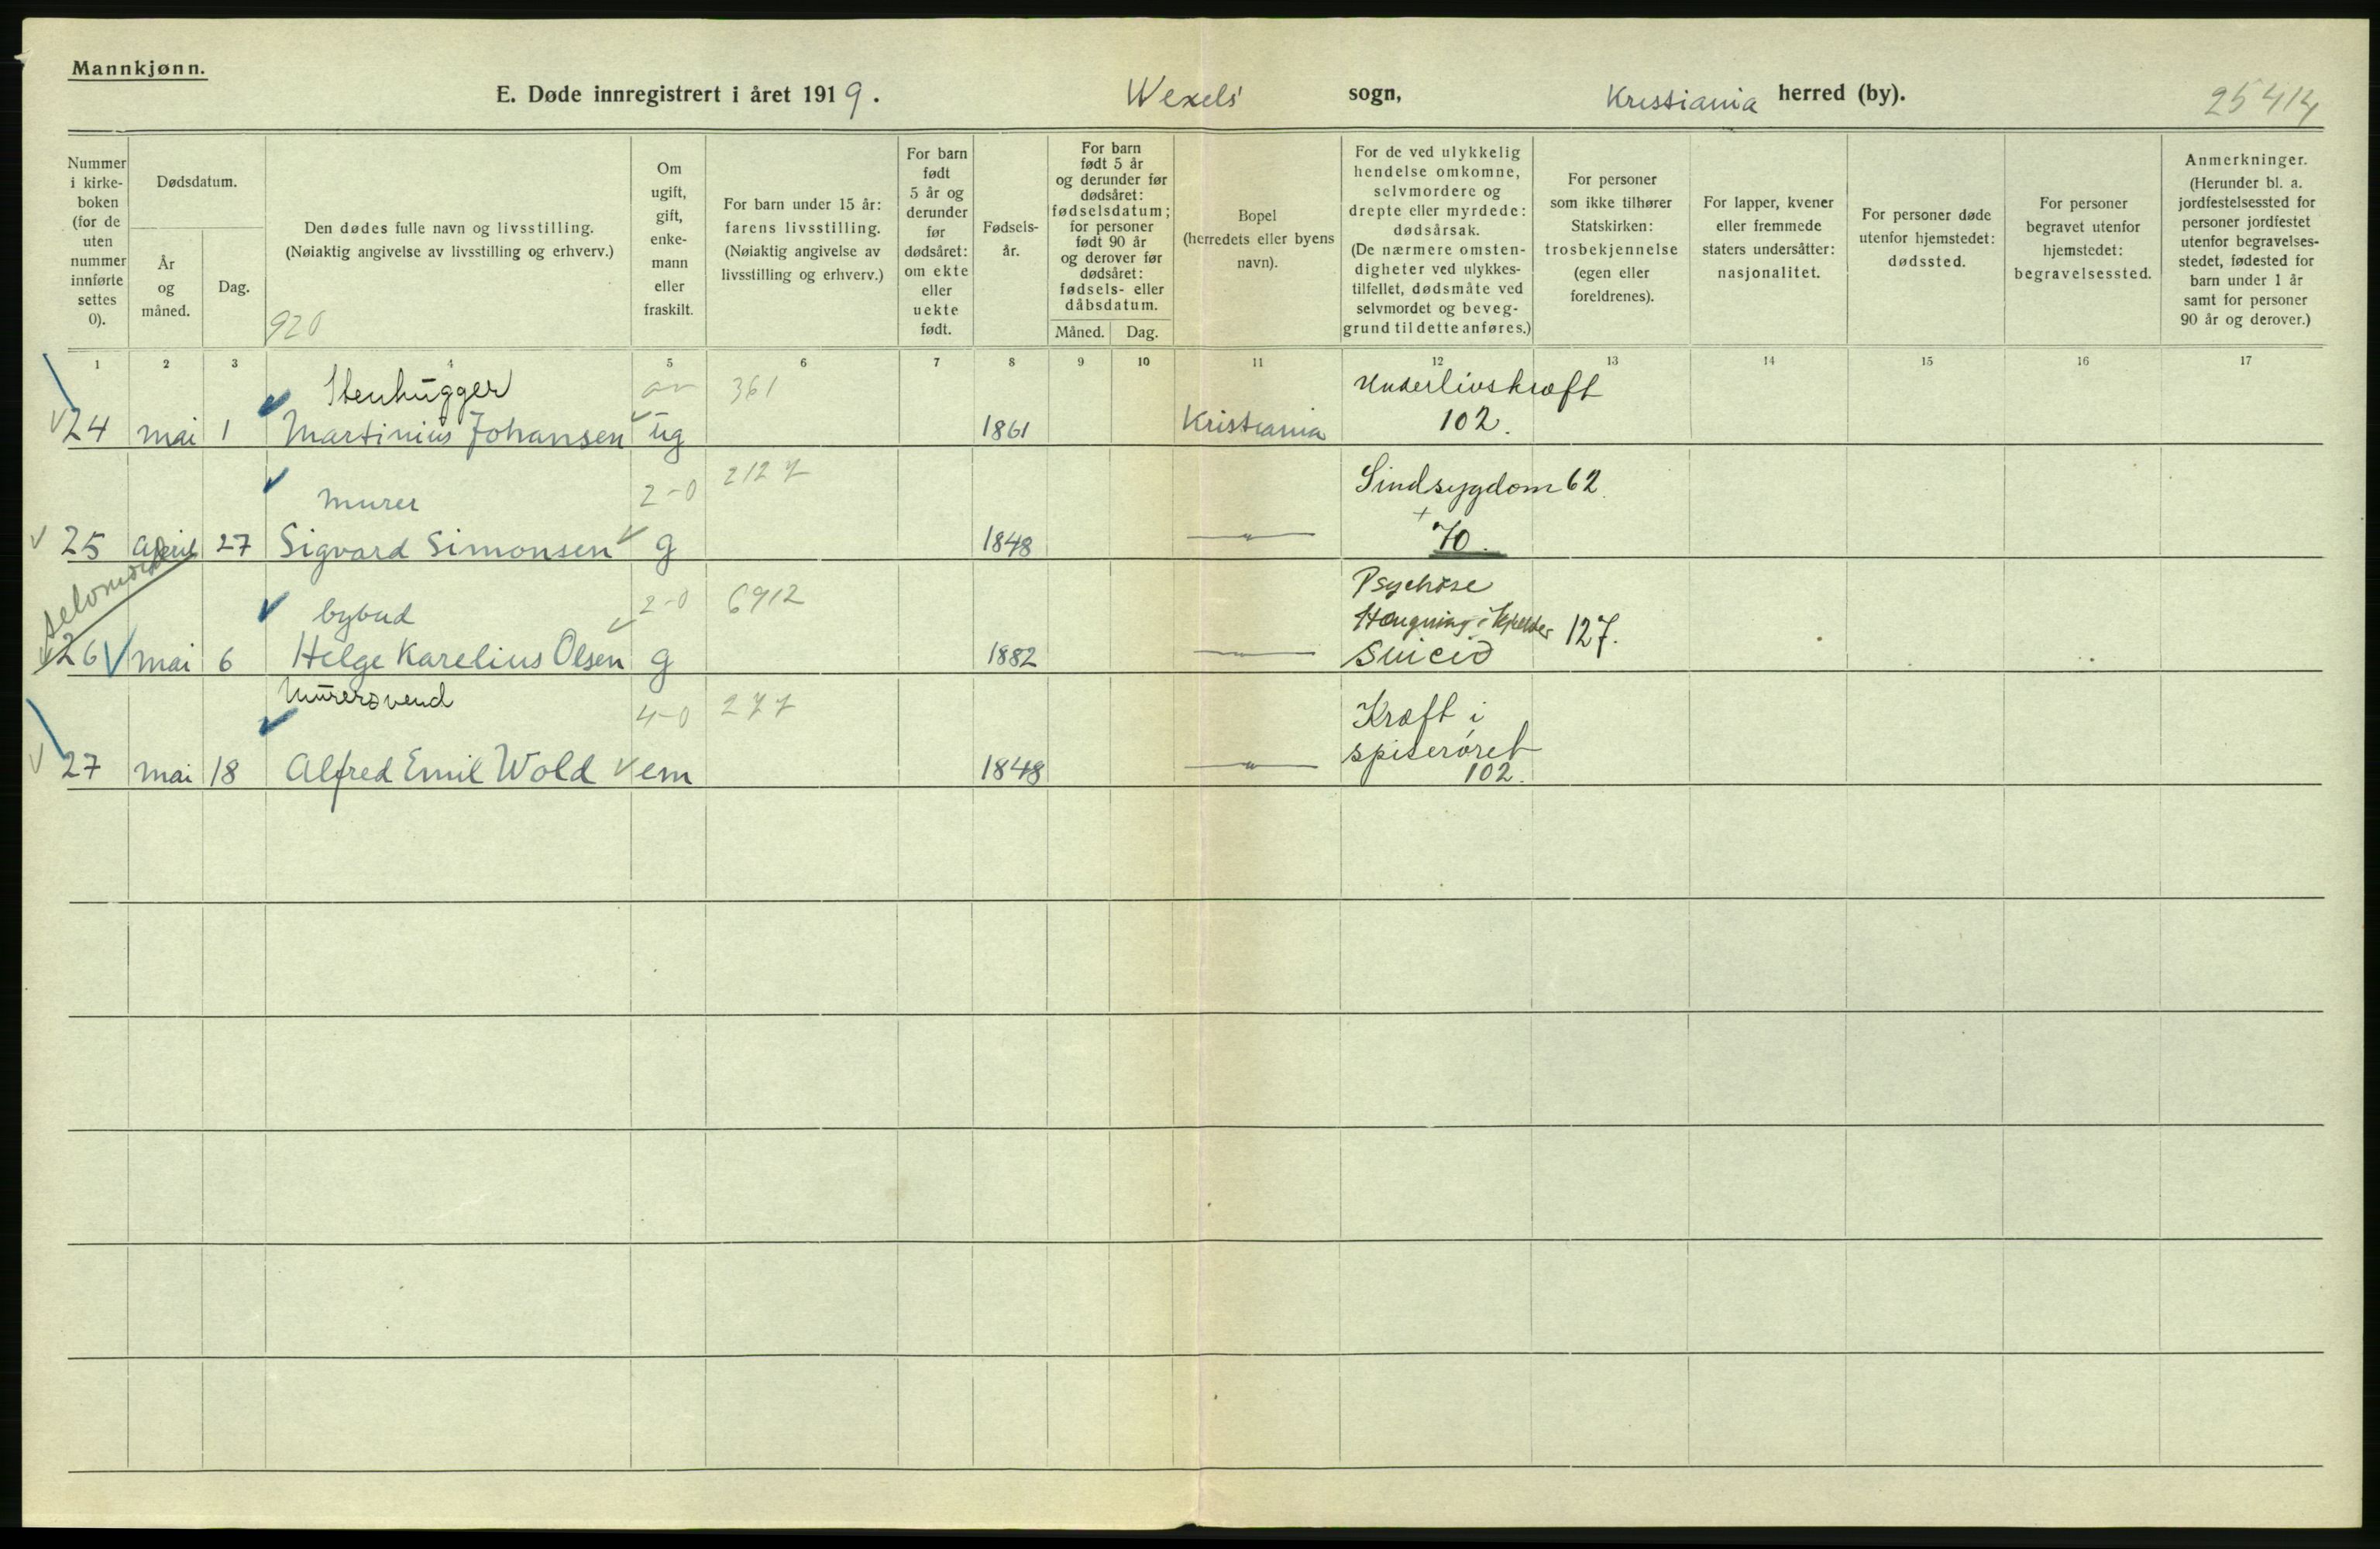 Mannkjønn.
E. Døde innregistrert i året 1919. Wexels' sogn, Kristiania herred (by). 25414
Nummer i kirke-boken (for de uten nummer innførte settes 0).
Dødsdatum.
År og måned.
Dag.
Den dødes fulle navn og livsstilling.
(Nøiaktig angivelse av livsstilling og erhverv.)
920
Om ugift, gift, enke-mann eller fraskilt.
For barn under 15 år: farens livsstilling.
(Nøiaktig angivelse av livsstilling og erhverv.)
For barn født 5 år og derunder før dødsåret: om ekte eller uekte født.
Fødsels-år.
For barn født 5 år og derunder før dødsåret: fødselsdatum; for personer født 90 år og derover før dødsåret: fødsels- eller dåbsdatum.
Måned. Dag.
Bopel (herredets eller byens navn).
For de ved ulykkelig hendelse omkomne, selvmordere og drepte eller myrdede: dødsårsak. (De nærmere omsten-digheter ved ulykkes-tilfellet, dødsmåte ved selvmordet og beveg-grund til dette anføres.)
For personer som ikke tilhører Statskirken: trosbekjennelse (egen eller foreldrenes).
For lapper, kvener eller fremmede staters undersåtter: nasjonalitet.
For personer døde utenfor hjemstedet: dødssted.
For personer begravet utenfor hjemstedet: begravelsessted.
Anmerkninger. (Herunder bl. a. jordfestelsessted for personer jordfestet utenfor begravelses-stedet, fødested for barn under 1 år samt for personer 90 år og derover.)
1 2 3 4 5 6 7 8 9 10 11 12 13 14 15 16 17
Stenhugger 361 Underlivskræft
24 mai 1 Martinius Johansen ug 1861 Kristiania 102.
murer 2-0 2127 Sindsygdom 62.
25 April 27 Sigvard Simonsen g 1848 —"— + 70.
selvmord
bybud 2-0 6912 Psychose
Hængning i kjelder 127.
26 mai 6 Helge Karelius Olsen g 1882 —"— Suicid
Murersvend 4-0 277 Kræft i
27 mai 18 Alfred Emil Wold em 1848 —"— spiserøret
102.